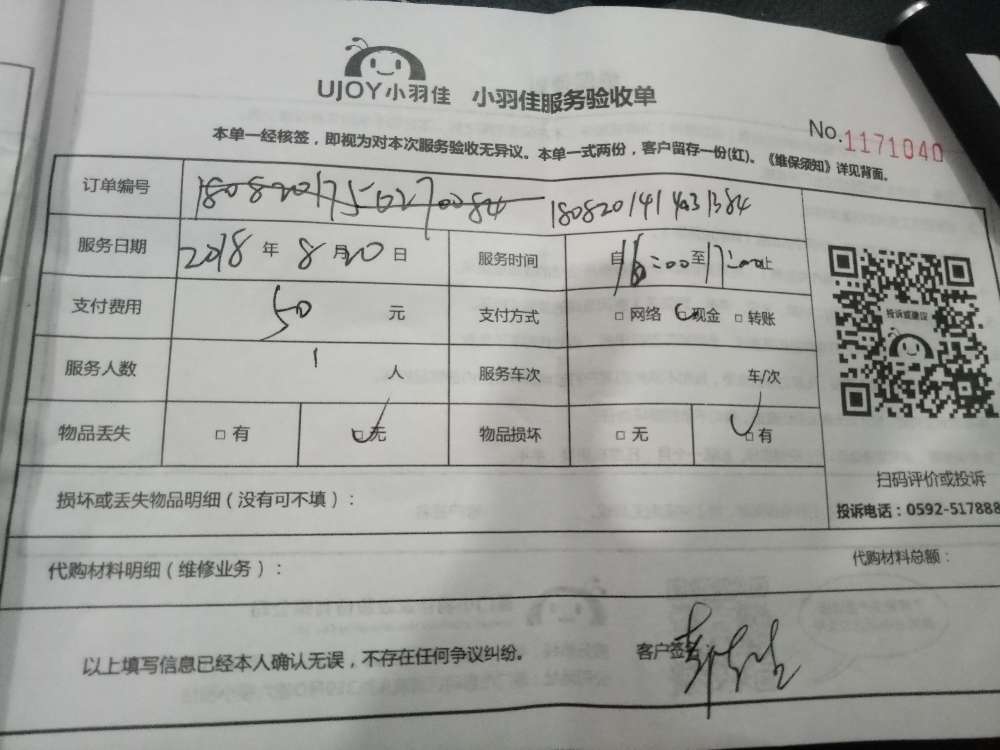 UJOY小羽佳 小羽佳服务验收单
No.1171040
本单一经核签，即视为对本次服务验收无异议。本单一式两份，客户留存一份(红)。《维保须知》详见背面。
订单编号 1808201414031384
服务日期 2018 年 8 月 20 日 服务时间 自 16:00 至 17:00 止
支付费用 50 元 支付方式 □ 网络 现金 □ 转账
服务人数 1 人 服务车次 车/次
物品丢失 □ 有 □ 无 物品损坏 □ 无 □ 有
投诉或建议
扫码评价或投诉
投诉电话：0592-517888
损坏或丢失物品明细（没有可不填）：
代购材料明细（维修业务）： 代购材料总额：
以上填写信息已经本人确认无误，不存在任何争议纠纷。 客户签